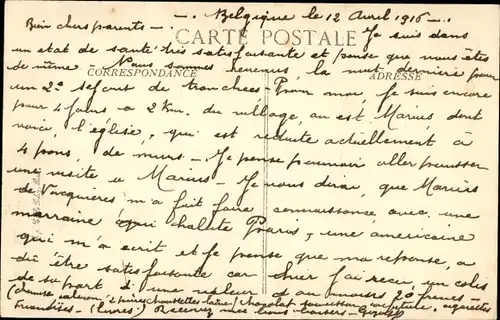 -. Belgique le 12 Avril 1916 -.
Bien chers parents - Je suis dans
CARTE POSTALE
un état de santé très satisfaisante et pense que vous êtes
de même - Nous sommes revenus, la nuit dernière pour
CORRESPONDANCE
ADRESSE
un 2e séjour de tranchées - Pour moi, je suis encore
pour 4 jours à 2 Km. du village, où est Marius dont
voici, l'église, qui est reduite actuellement à
4 pans, de murs - Je pense pouvoir aller pousser
une visite à Marius - Je vous dirai, que Marius
de Vacquières m'a fait faire connaissance, avec, une
marraine qui habite Paris, une américaine
qui m'a écrit et je pense que ma réponse, a
dû être satisfaisante car hier j'ai reçu, un colis
de sa part d'une valeur d'au moins 20 francs -
(chemise caleçon 2 paires chaussettes laine) chocolat saucisson cigarettes
Friandises - (livres) Recevez mes bons baisers -